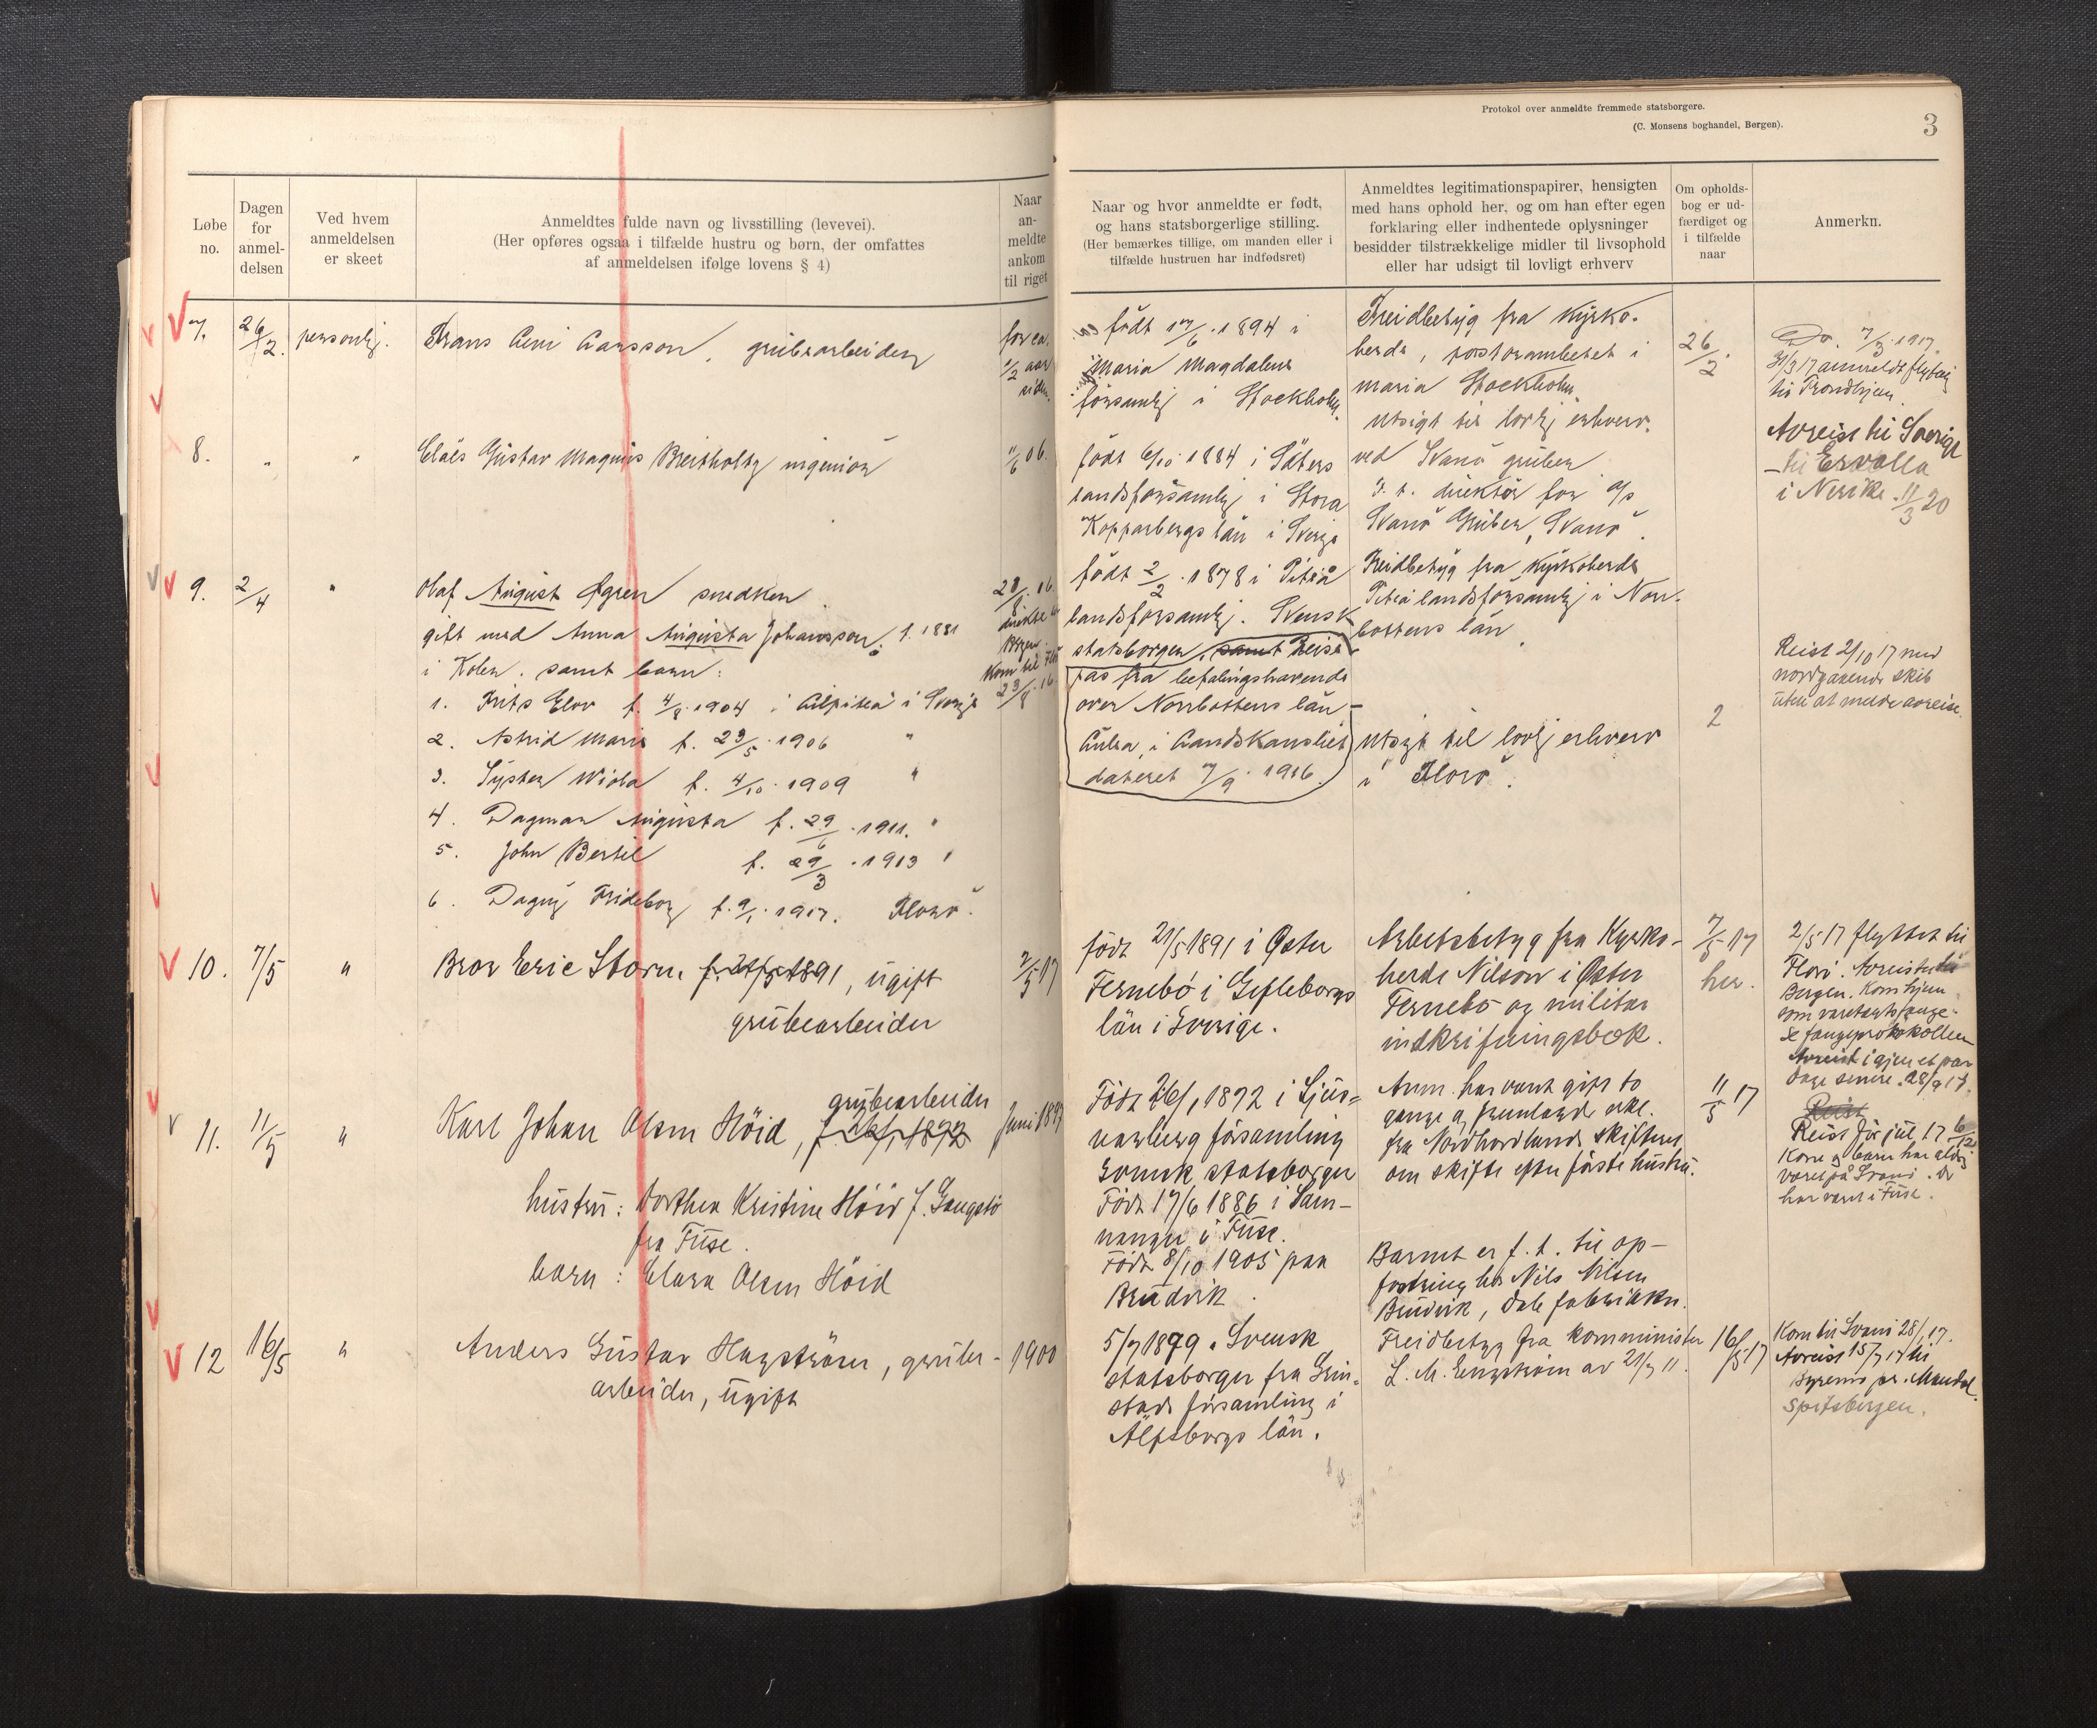 Protokol over anmeldte fremmede statsborgere.
(C. Monsens boghandel, Bergen).
3
Løbe no.
Dagen for anmel-delsen
Ved hvem anmeldelsen er skeet
Anmeldtes fulde navn og livsstilling (levevei).
(Her opføres ogsaa i tilfælde hustru og børn, der omfattes
af anmeldelsen ifølge lovens § 4)
Naar an-meldte ankom til riget
Naar og hvor anmeldte er født,
og hans statsborgerlige stilling.
(Her bemærkes tillige, om manden eller i
tilfælde hustruen har indfødsret)
Anmeldtes legitimationspapirer, hensigten
med hans ophold her, og om han efter egen
forklaring eller indhentede oplysninger
besidder tilstrækkelige midler til livsophold
eller har udsigt til lovligt erhverv
Om opholds-bog er ud-færdiget og i tilfælde naar
Anmerkn.
7. 26/2. personlig.
Larsson, grubearbeider
for ca. 1/2 aar siden.
født 17/6. 1894 i
Maria Magdalene
församlig i Stockholm.
Freidbetyg fra Kyrko-
herde, pastorambetet i
Maria Stockholm.
utsigt til lovlig erhverv.
ved Svanö gruber
26/2
7/3 1917.
31/3 17 anmeldt flytning
til Trondhjem
8. " "
Claës Gustav Magnus Breitholtz ingeniör
1/6 06.
født 6/10 1884 i Säters
landsforsamlig i Stora
Kopparbergs län i Sverige
d. t. direktör for a/s
Svanö Gruber, Svanö.
Avreist til Sverige
- til Ervalla
i Nerike. 11/3 20
9. 2/4 "
Olof August Ögren snedker
gift med Anna Augusta Johansson f. 1881
i Kolen. samt barn:
1. Frits Elov f. 4/8. 1904 i Sverige
2. Astrid Maria f. 23/5. 1906 "
3. Syster Viola f. 4/10. 1909 "
4. Dagmar Augusta f. 29/6. 1911. "
5. John Bertil f. 29/3. 1913 "
6. Dagny Frideborg f. 9/1. 1917. Florö.
28/8. 16.
direkte til
Bergen.
Kom til Florö
29/8. 16.
født 2/2. 1878 i Piteå
landsforsamlig. Svensk
statsborger, samt Reise-
pas fra befalingshavende
over Norrbottens län -
Luleå, i Landskansliet
dateret 7/9. 1916.
Freidbetyg fra Kyrkoherde
Piteå landsforsamlig i Norr-
bottens län
utsigt til lovlig erhverv
i Florö.
2
Reist 2/10 17 med
nordgaaende skib
uten at melde avreise.
10. 7/5 "
Bror Eric Storm f. 21/5 1891, ugift
grubearbeider
2/5 17
født 21/5 1891 i Öster
Fernebö i Gefleborgs
län i Sverige.
Arbeitsbetyg fra Kyrko-
herde Nilson i Öster
Fernebö og militær
indkrifningsbok.
7/5 17
her.
2/5 17 flyttet til
Florö. Avreiste til
Bergen. Kom hjem
som varetægtsfange.
Se fangeprotokollen
Avreist igjen et par
dage senere. 28/9 17.
11. 11/5 "
grubearbeider
Karl Johan Olsen Höid, f. 26/1 1872
Juni 1897
hustru: Dorthea Kristine Höid f.
fra Fuse.
barn: Clara Olsen Höid
Född 26/1 1872 i Ljus-
narsberg församling
Svensk statsborger
Född 17/6 1886 i Sam-
nanger i Fuse.
Född 8/10 1905 paa
Bruvik.
Anm. har været gift to
gange og fremlagde erkl.
fra Nordhordlands skifteret
om skifte efter förste hustru.
Barnet er f. t. til op-
fostring hos Nils Nilsen
Bruvik, Dale fabrikker.
11/5 17
Reist
Reist för jul, 17 6/12
Kone og barn har aldrig
været på Svanö. De
har været i Fuse.
12 16/5 "
Anders Gustav Hagström, grube-
arbeider, ugift
1900
5/7 1879. Svensk
statsborger fra Grin-
stads församling i
Älfsborgs län.
Freidbetyg fra komminister
L. M. Engström av 21/7 11.
16/5 17
Kom til Svanö 28/1 17.
Avreist 15/7 17 til
pr. Mandal.
Spitsbergen.